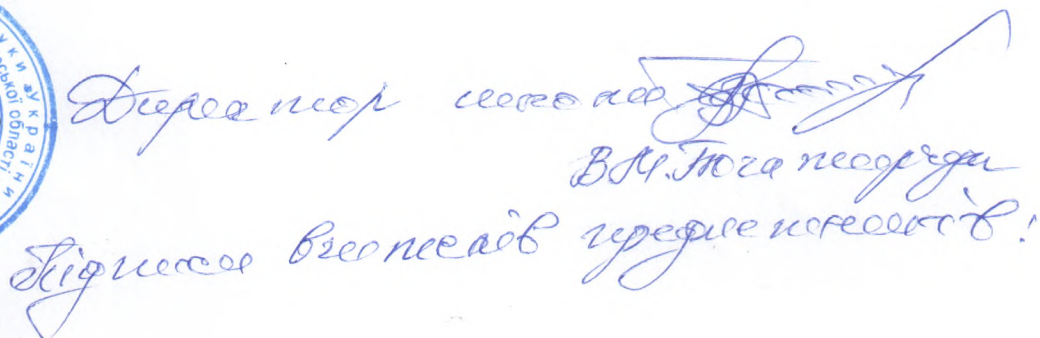 уки України
ської області
Директор школи
В.М.
Підписи вчителів предметників: